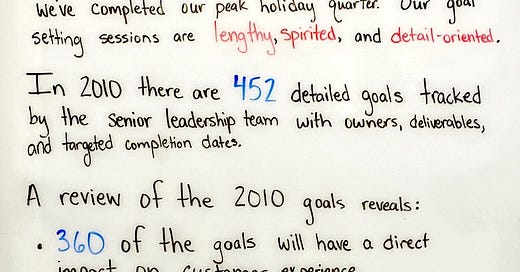 We've completed our peak holiday quarter. Our goal
setting sessions are lengthy, spirited, and detail-oriented.
In 2010 there are 452 detailed goals tracked
by the senior leadership team with owners, deliverables,
and targeted completion dates.
A review of the 2010 goals reveals:
• 360 of the goals will have a direct
impact on customer experience